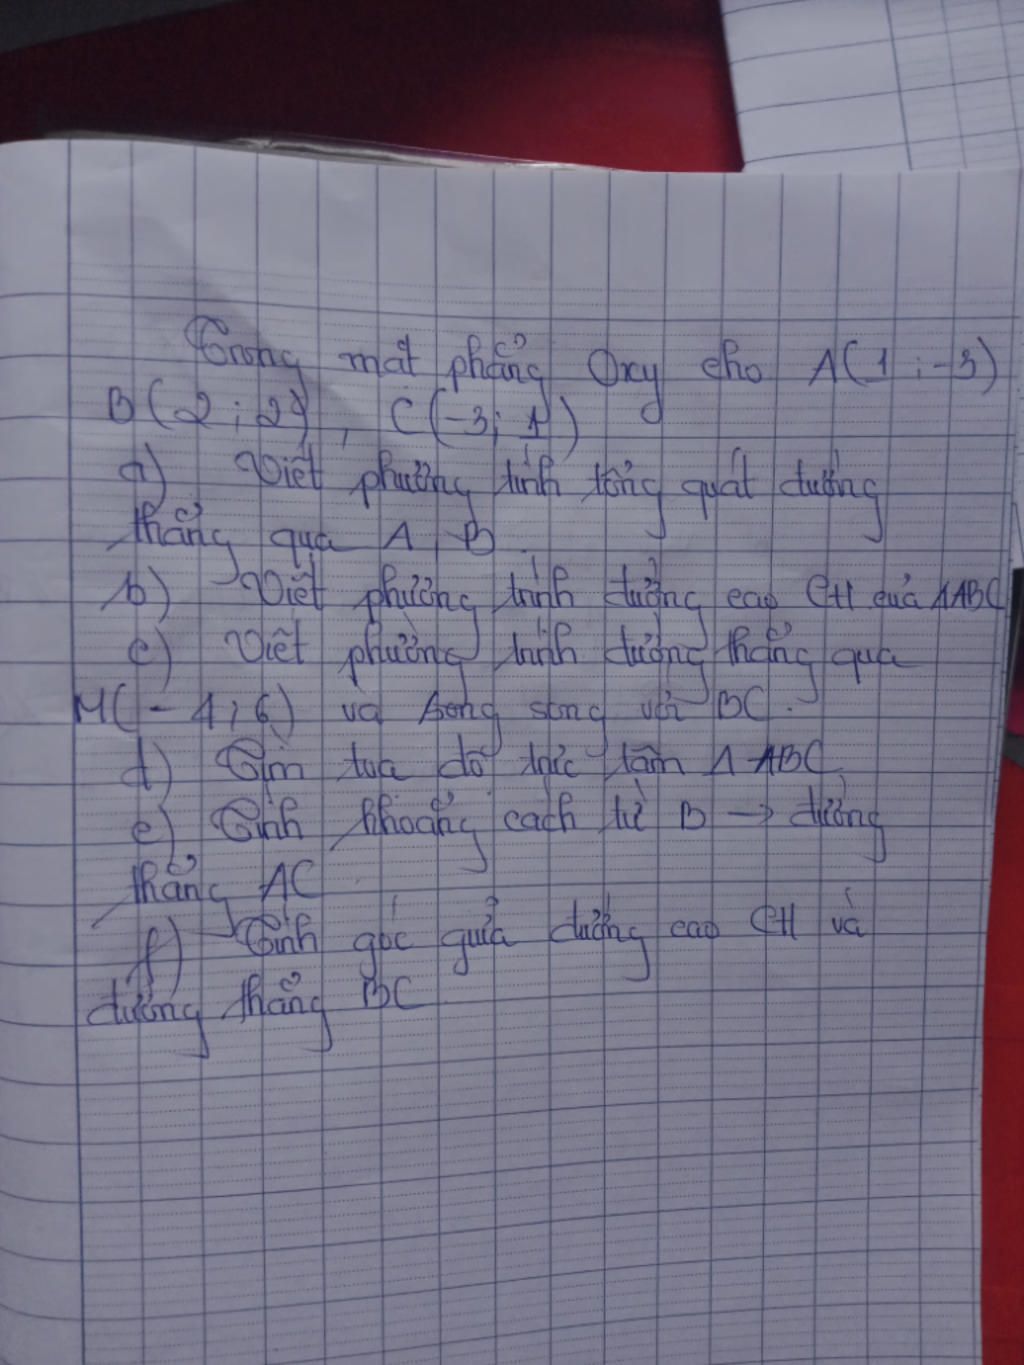 Trong mặt phẳng Oxy cho A(1; -3)
B(2; 2), C(-3; 1)
a) Viết phương trình tổng quát đường
thẳng qua A, B
b) Viết phương trình đường cao CH của ΔABC
c) Viết phương trình đường thẳng qua
M(-4; 6) và song song với BC.
d) Tìm tọa độ trực tâm ΔABC
e) Tính khoảng cách từ B → đường
thẳng AC
f) Tính góc giữa đường cao CH và
đường thẳng BC